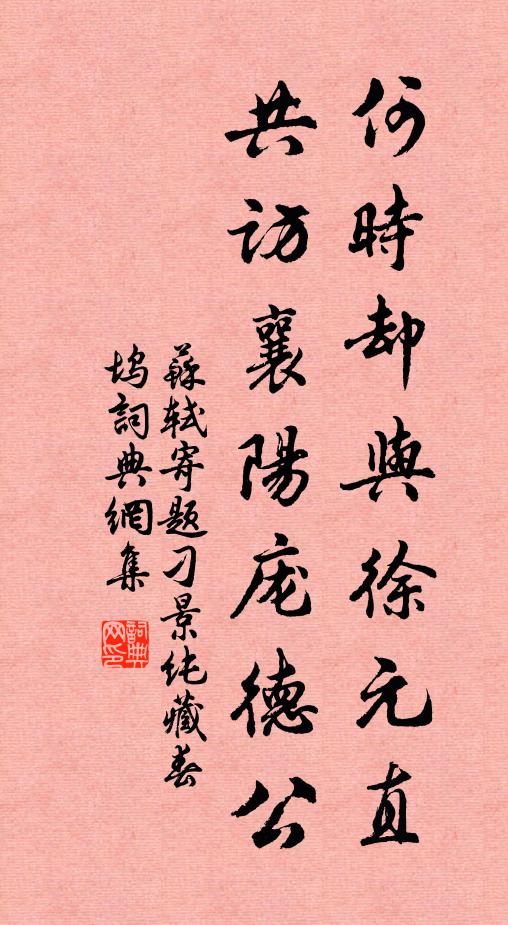 何時却與徐元直
共訪襄陽庞德公
蘇轼寄题刁景纯藏春
塢詞典網集
詞典网印